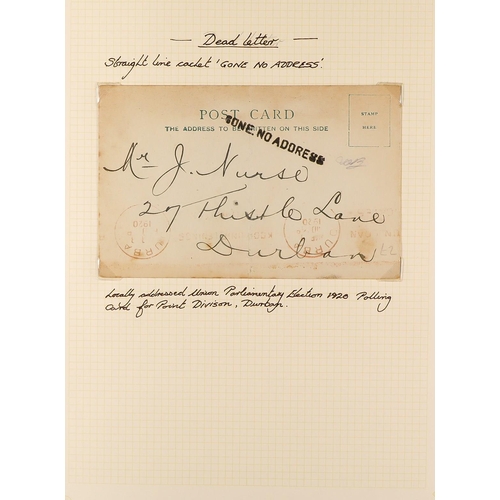 Dead Letter
Straight line cachet 'GONE NO ADDRESS'.
POST CARD
THE ADDRESS TO BE WRITTEN ON THIS SIDE
STAMP
HERE
GONE. NO ADDRESS
Mr J. Nurse
27 Thistle Lane
Durban
62
Locally addressed Union Parliamentary Election 1920 Polling
Card for Point Divison, Durban.